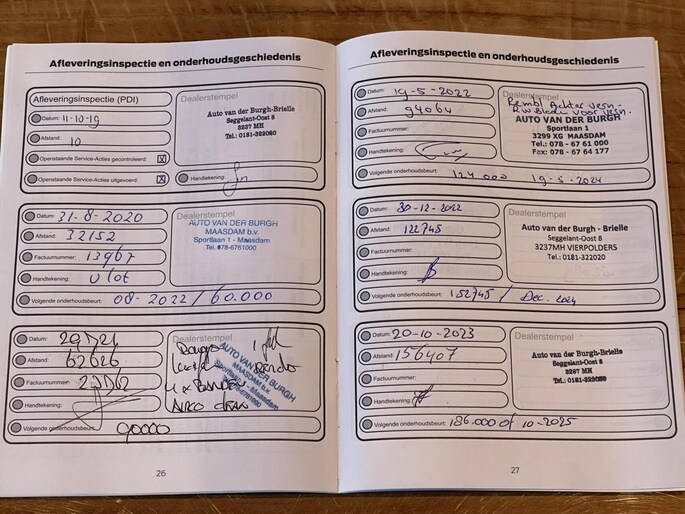 Afleveringsinspectie en onderhoudsgeschiedenis
Afleveringsinspectie (PDI)
Datum: 11-10-19
Afstand: 10
Openstaande Service-Acties gecontroleerd: X
Openstaande Service-Acties uitgevoerd: X
Dealerstempel
Auto van der Burgh-Brielle
Seggelant-Oost 8
3237 MH
Tel.: 0181-322020
Handtekening:
Datum: 31-8-2020
Afstand: 32152
Factuurnummer: 13967
Handtekening: Vlot
Volgende onderhoudsbeurt: 08-2022 / 60.000
Dealerstempel
AUTO VAN DER BURGH
MAASDAM b.v.
Sportlaan 1 - Maasdam
Tel. 078-6761000
Datum:
Afstand: 62626
Factuurnummer:
Handtekening:
Volgende onderhoudsbeurt: 90000
Dealerstempel
AUTO VAN DER BURGH
MAASDAM b.v.
Sportlaan 1 - Maasdam
4x BANDEN
26
Afleveringsinspectie en onderhoudsgeschiedenis
Datum: 19-5-2022
Afstand: 94064
Factuurnummer:
Handtekening:
Volgende onderhoudsbeurt: 124.000 19-5-2024
Dealerstempel
Rembl. Achter vern.
voor vern.
AUTO VAN DER BURGH
Sportlaan 1
3299 XG MAASDAM
Tel.: 078 - 67 61 000
Fax: 078 - 67 64 177
Datum: 30-12-2022
Afstand: 122745
Factuurnummer:
Handtekening:
Volgende onderhoudsbeurt: 152745 / Dec. 2024
Dealerstempel
Auto van der Burgh - Brielle
Seggelant-Oost 8
3237MH VIERPOLDERS
Tel.: 0181-322020
Datum: 20-10-2023
Afstand: 156407
Factuurnummer:
Handtekening:
Volgende onderhoudsbeurt: 186.000 of 10-2025
Dealerstempel
Auto van der Burgh-Brielle
Seggelant-Oost 8
3237 MH
Tel.: 0181-322020
27